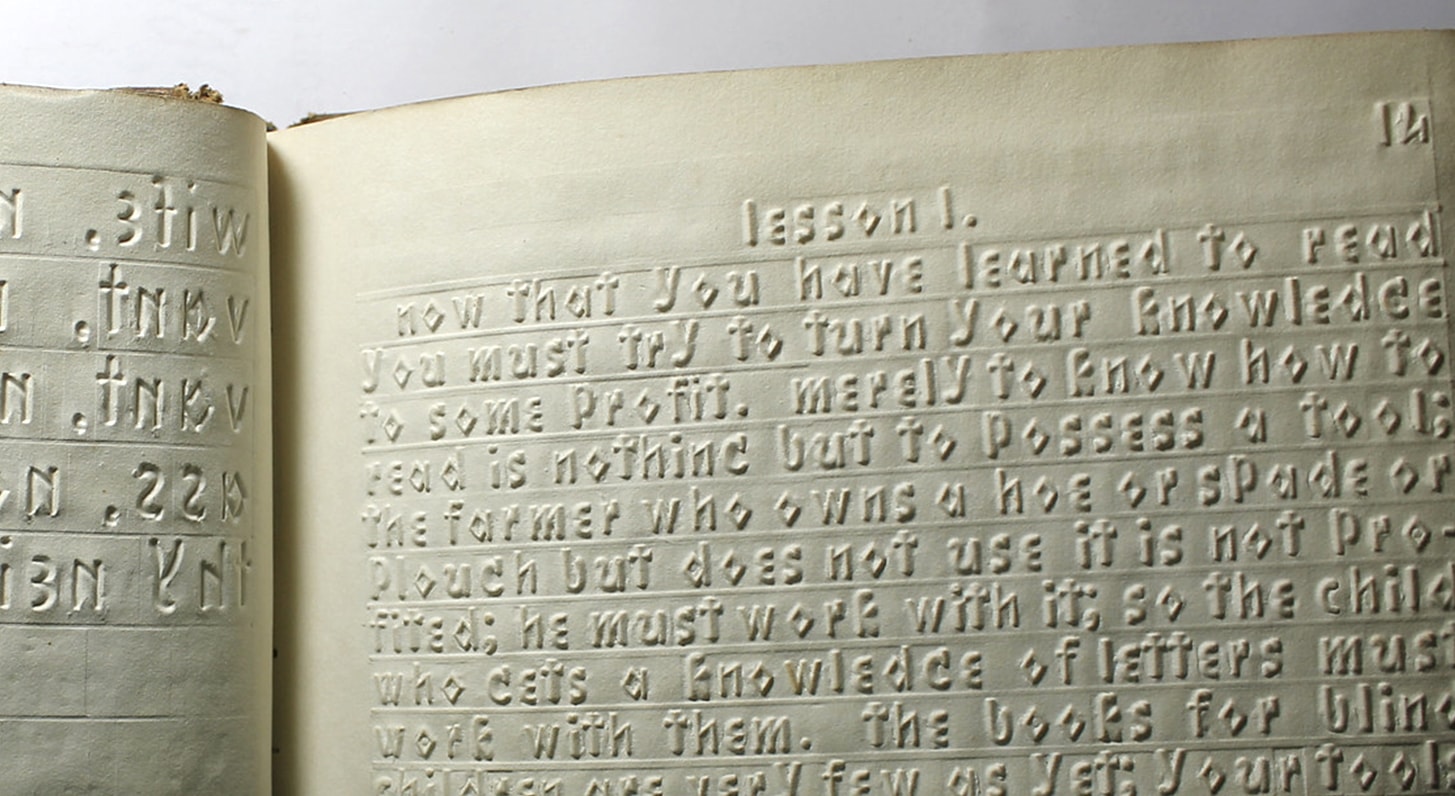 wife.
vant.
vant.
ass.
thy nei
lesson 1.
now that you have learned to read
you must try to turn your knowledge
to some profit. merely to know how to
read is nothing but to possess a tool;
the farmer who owns a hoe or spade or
plough but does not use it is not pro-
fited; he must work with it; so the child
who gets a knowledge of letters must
work with them. the books for blind
children are very few as yet; your tools